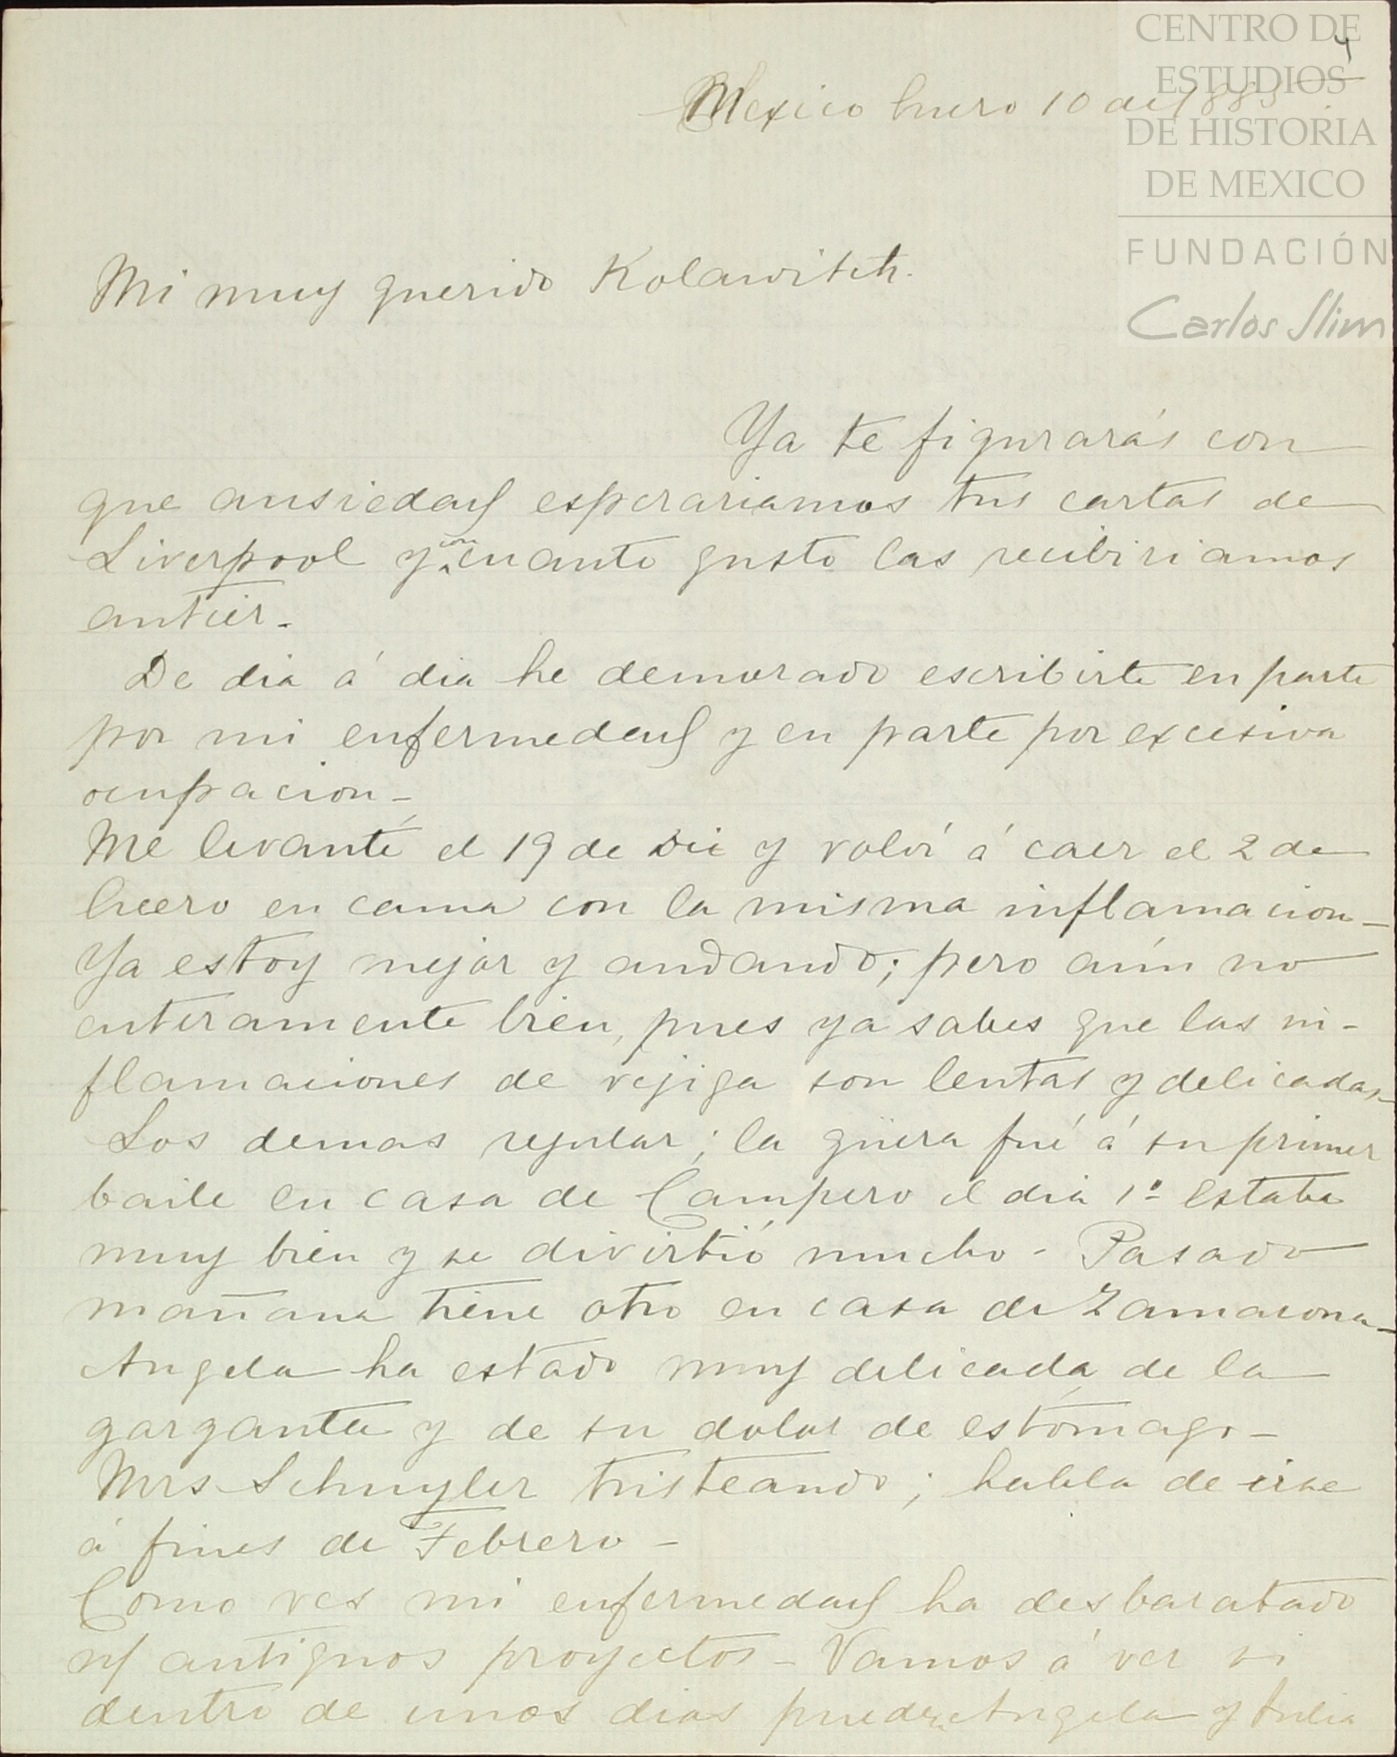 CENTRO DE
ESTUDIOS
DE HISTORIA
DE MEXICO
FUNDACIÓN
Carlos Slim
4
Mexico Enero 10 de 1883
Mi muy querido Kolawitch.
Ya te figurarás con
que ansiedad esperariamos tus cartas de
Liverpool y con cuanto gusto las recibiriamos
antier.
De dia á dia he demorado escribirte en parte
por mi enfermedad y en parte por excesiva
ocupacion_
Me levanté el 19 de Dic y volví á caer el 2 de
Enero en cama con la misma inflamacion_
Ya estoy mejor y andando; pero aún no
enteramente bien, pues ya sabes que las in-
flamaciones de vejiga son lentas y delicadas_
Los demas regular; la güera fué á su primer
baile en casa de Campero el dia 1º Estaba
muy bien y se divirtió mucho - Pasado
mañana tiene otro en casa de Zamacona_
Angela ha estado muy delicada de la
garganta y de su dolor de estómago_
Mrs Schuyler tristeando; habla de irse
á fines de Febrero_
Como ves mi enfermedad ha desbaratado
ns/ antiguos proyectos_ Vamos á ver si
dentro de unos dias pueden Angela y Julia